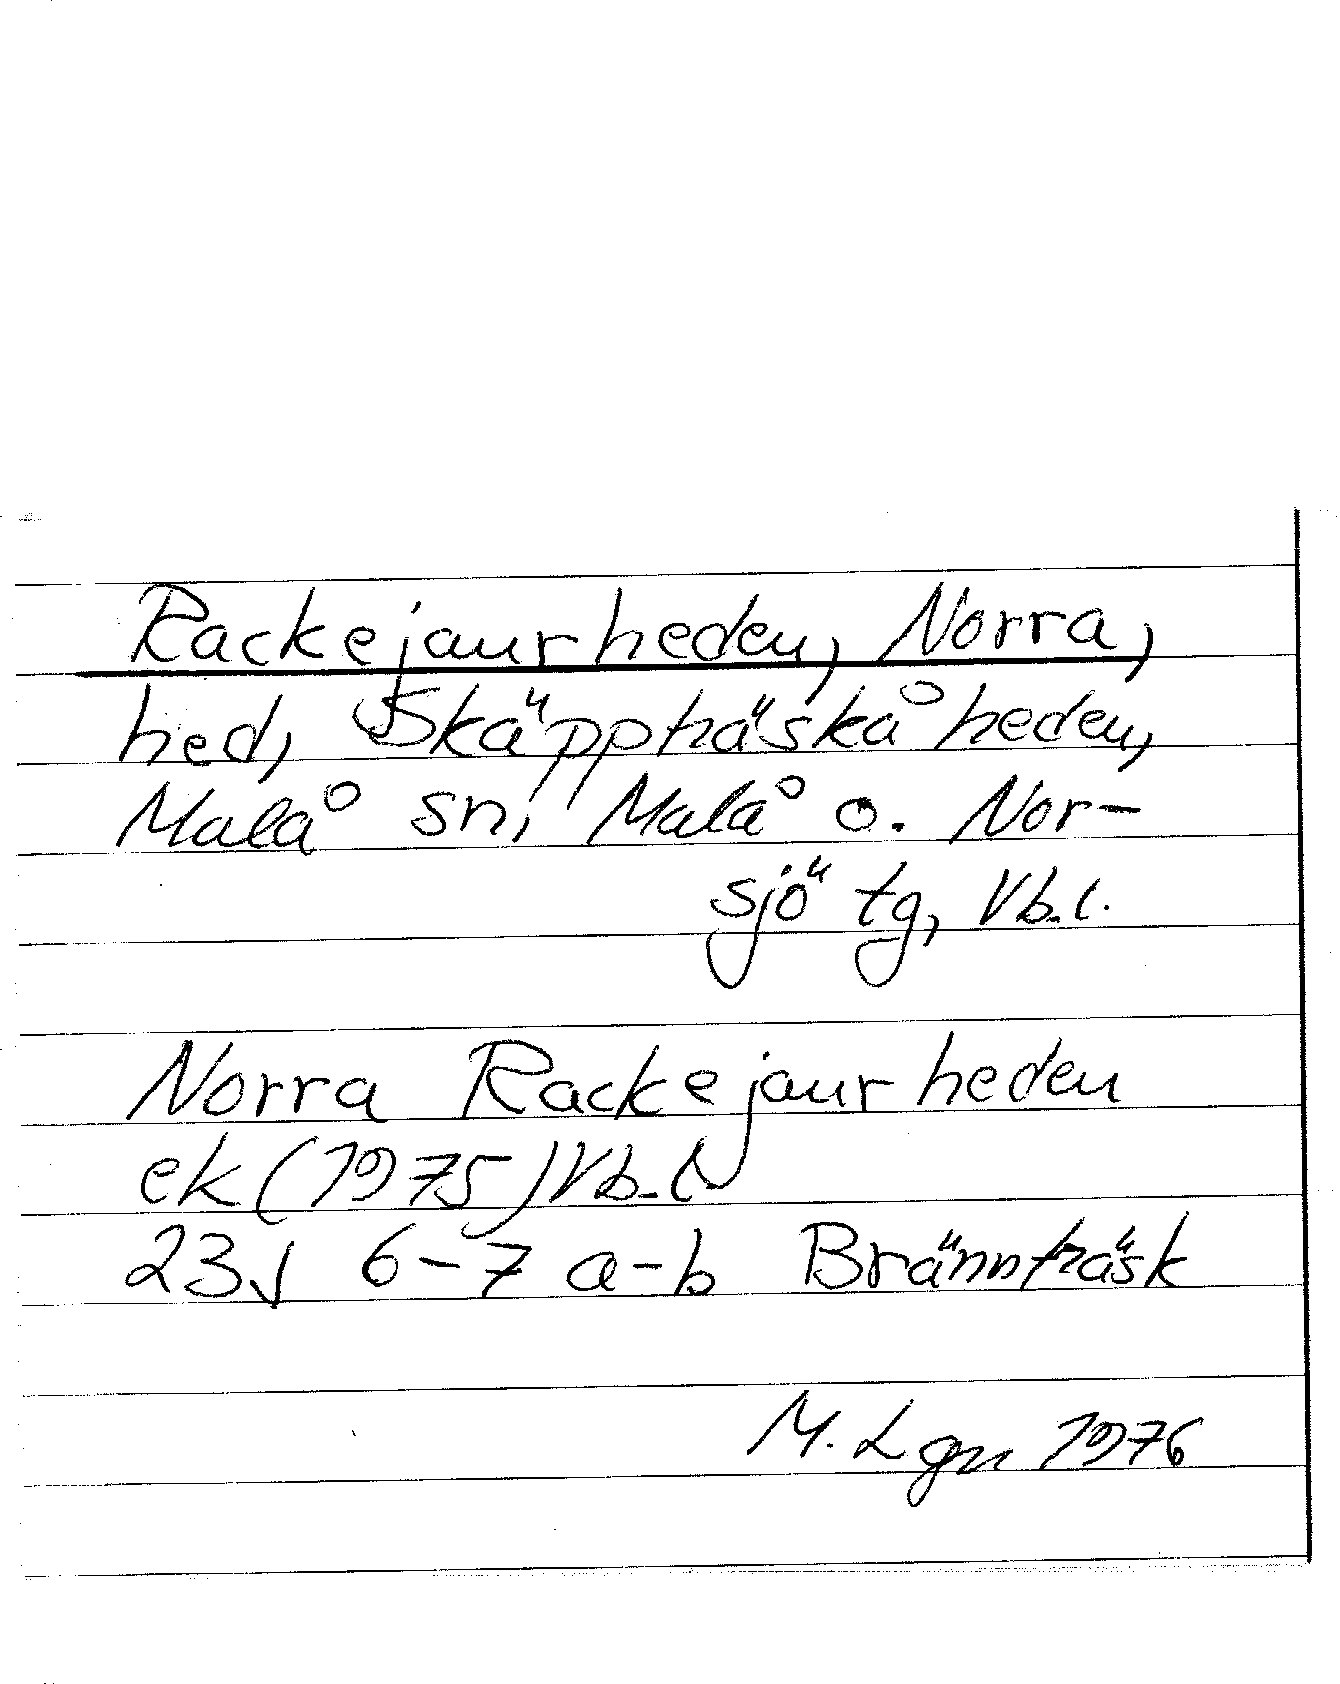 Rackejaurheden, Norra,
hed, Skäppträskåheden,
Malå sn, Malå o. Nor-
sjö tg, Vb.l.
Norra Rackejaurheden
ek (1975) Vb.l.
23J 6-7 a-b Brännträsk
M. Lgn 1976